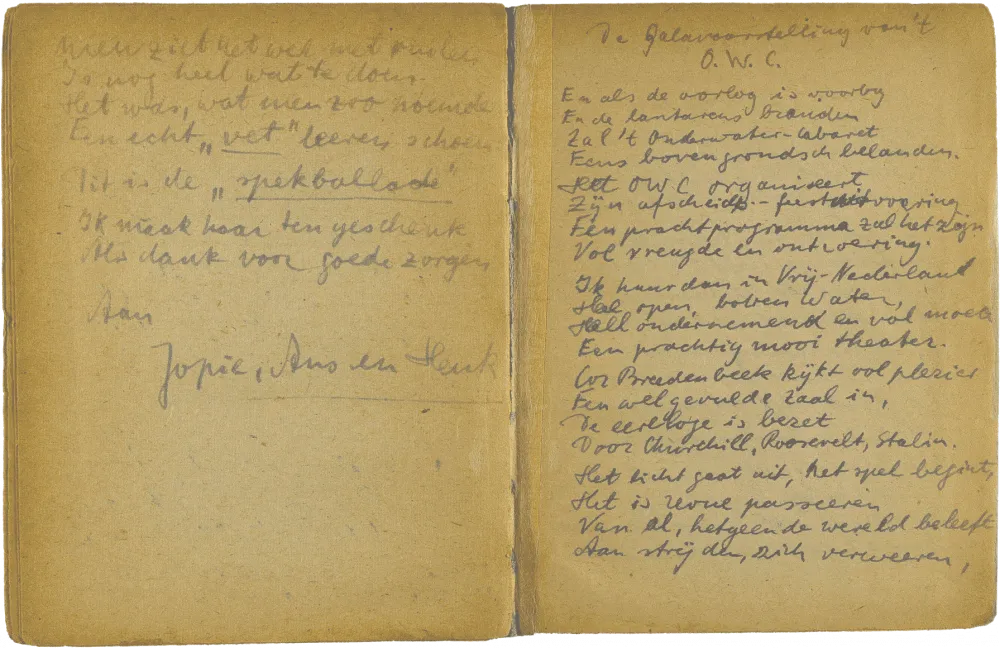 Men ziet het wel, met
Is nog heel wat te doen.
Het was, wat men zoo noemde
Een echt „vet" leeren schoen
Dit is de „spekballade"
Ik maak haar ten geschenk
Als dank voor goede zorgen
Aan
Jopie, Ans en Henk
De Galavoorstelling van 't
O.W.C.
En als de oorlog is voorby
En de lantarens branden
Zal 't Onderwater-Cabaret
Eens bovengrondsch belanden.
Het OWC organiseert
Zijn afscheids-feest voering
Een prachtprogramma zal het zijn
Vol vreugde en ontroering.
Ik huur dan in Vrij-Nederland
Heel open, boven water,
Heel ondernemend en vol moed
Een prachtig mooi theater.
Cor Breedenbeek kijkt vol plezier
Een welgevulde zaal in,
De eerloge is bezet
Door Churchill, Roosevelt, Stalin.
Het licht gaat uit, het spel begint,
Het is revue passeeren
Van al, hetgeen de wereld beleeft
Aan strijden, zich verweeren,